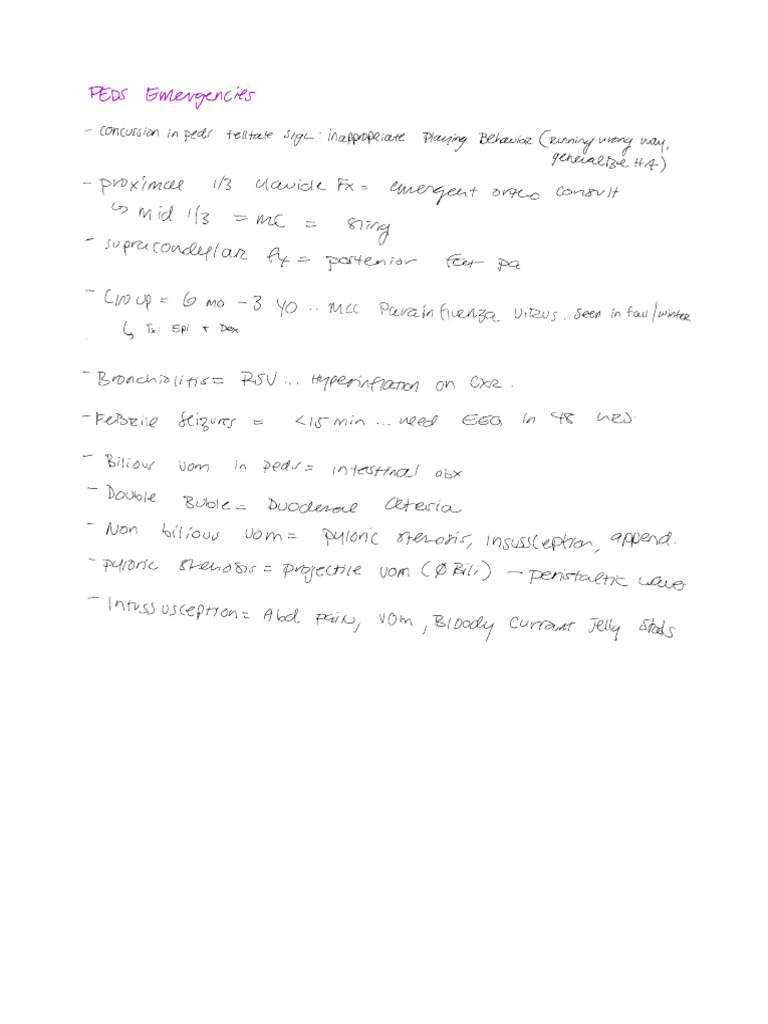 PEDS Emergencies
- concussion in peds telltale sign: inappropriate Playing Behavior (running wrong way,
generalize HA)
- proximal 1/3 clavicle Fx = emergent ortho consult
↳ mid 1/3 = MC = sling
- supracondylar fx = posterior fat pa
- Croup = 6 mo - 3 yo... MCC Parainfluenza virus.. seen in fall/winter
↳ Tx: Epi + Dex
- Bronchiolitis = RSV... Hyperinflation on CXR.
- Febrile seizures = <15 min... need EEG in 48 hrs.
- Bilious vom in peds = intestinal obx
- Double Buble = Duodenal Ateresia
- Non bilious vom = pyloric stenosis, insussception, append.
- pyloric stenosis = projectile vom (Ø Bili) - peristaltic waves
- Intussusception = Abd pain, vom, Bloody currant jelly stools